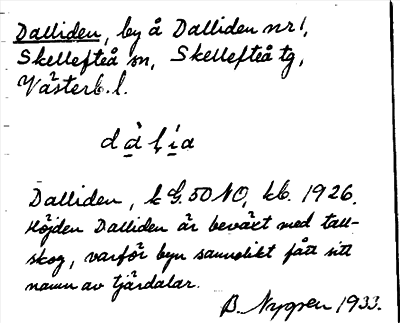 Dalliden, by å Dalliden nr 1,
Skellefteå sn, Skellefteå tg,
Västerb. l.
Dalliden, k G. 50 NO, kb. 1926.
Höjden Dalliden är beväxt med tall-
skog, varför byn sannolikt fått sitt
namn av tjärdalar.
B. Nyggren 1933.